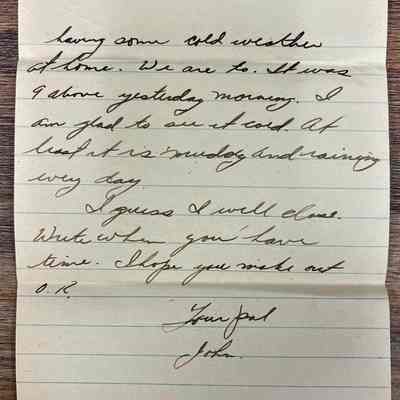 having some cold weather
at home. We are to. It was
9 above yesterday morning. I
am glad to see it cold. At
least it is muddy and raining
every day
I guess I will close.
Write when you have
time. I hope you make out
O.K.
Your pal
John.